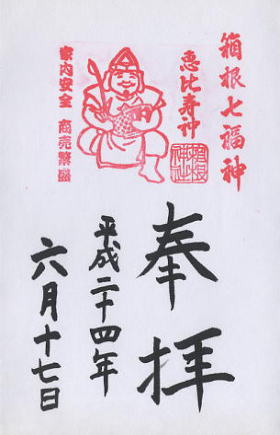 箱根七福神
恵比寿神
家内安全 商売繁盛
奉拝
平成二十四年
六月十七日